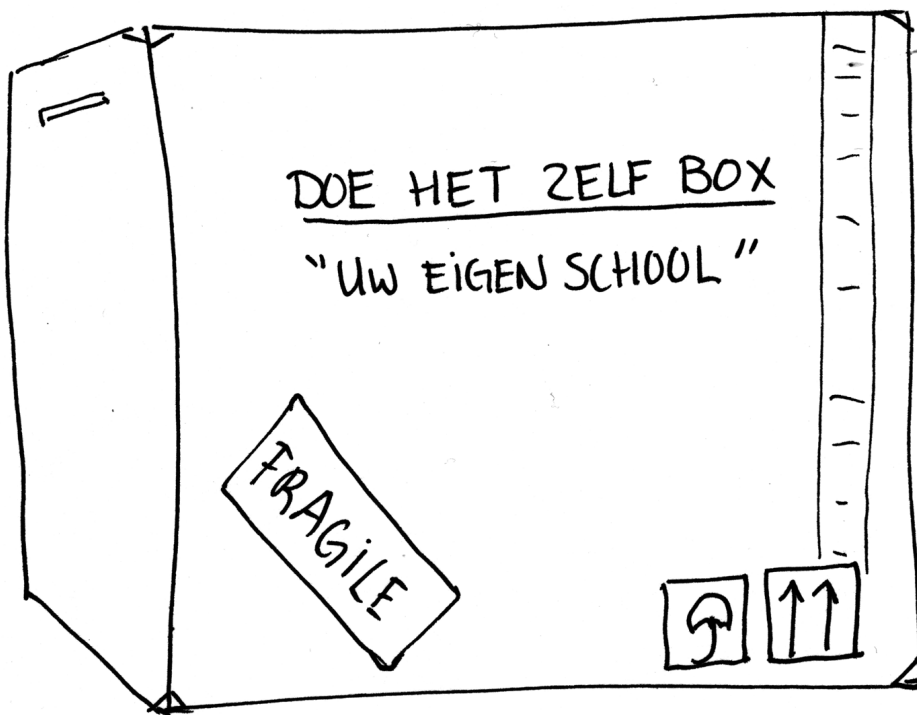 DOE HET ZELF BOX
"UW EIGEN SCHOOL"
FRAGILE